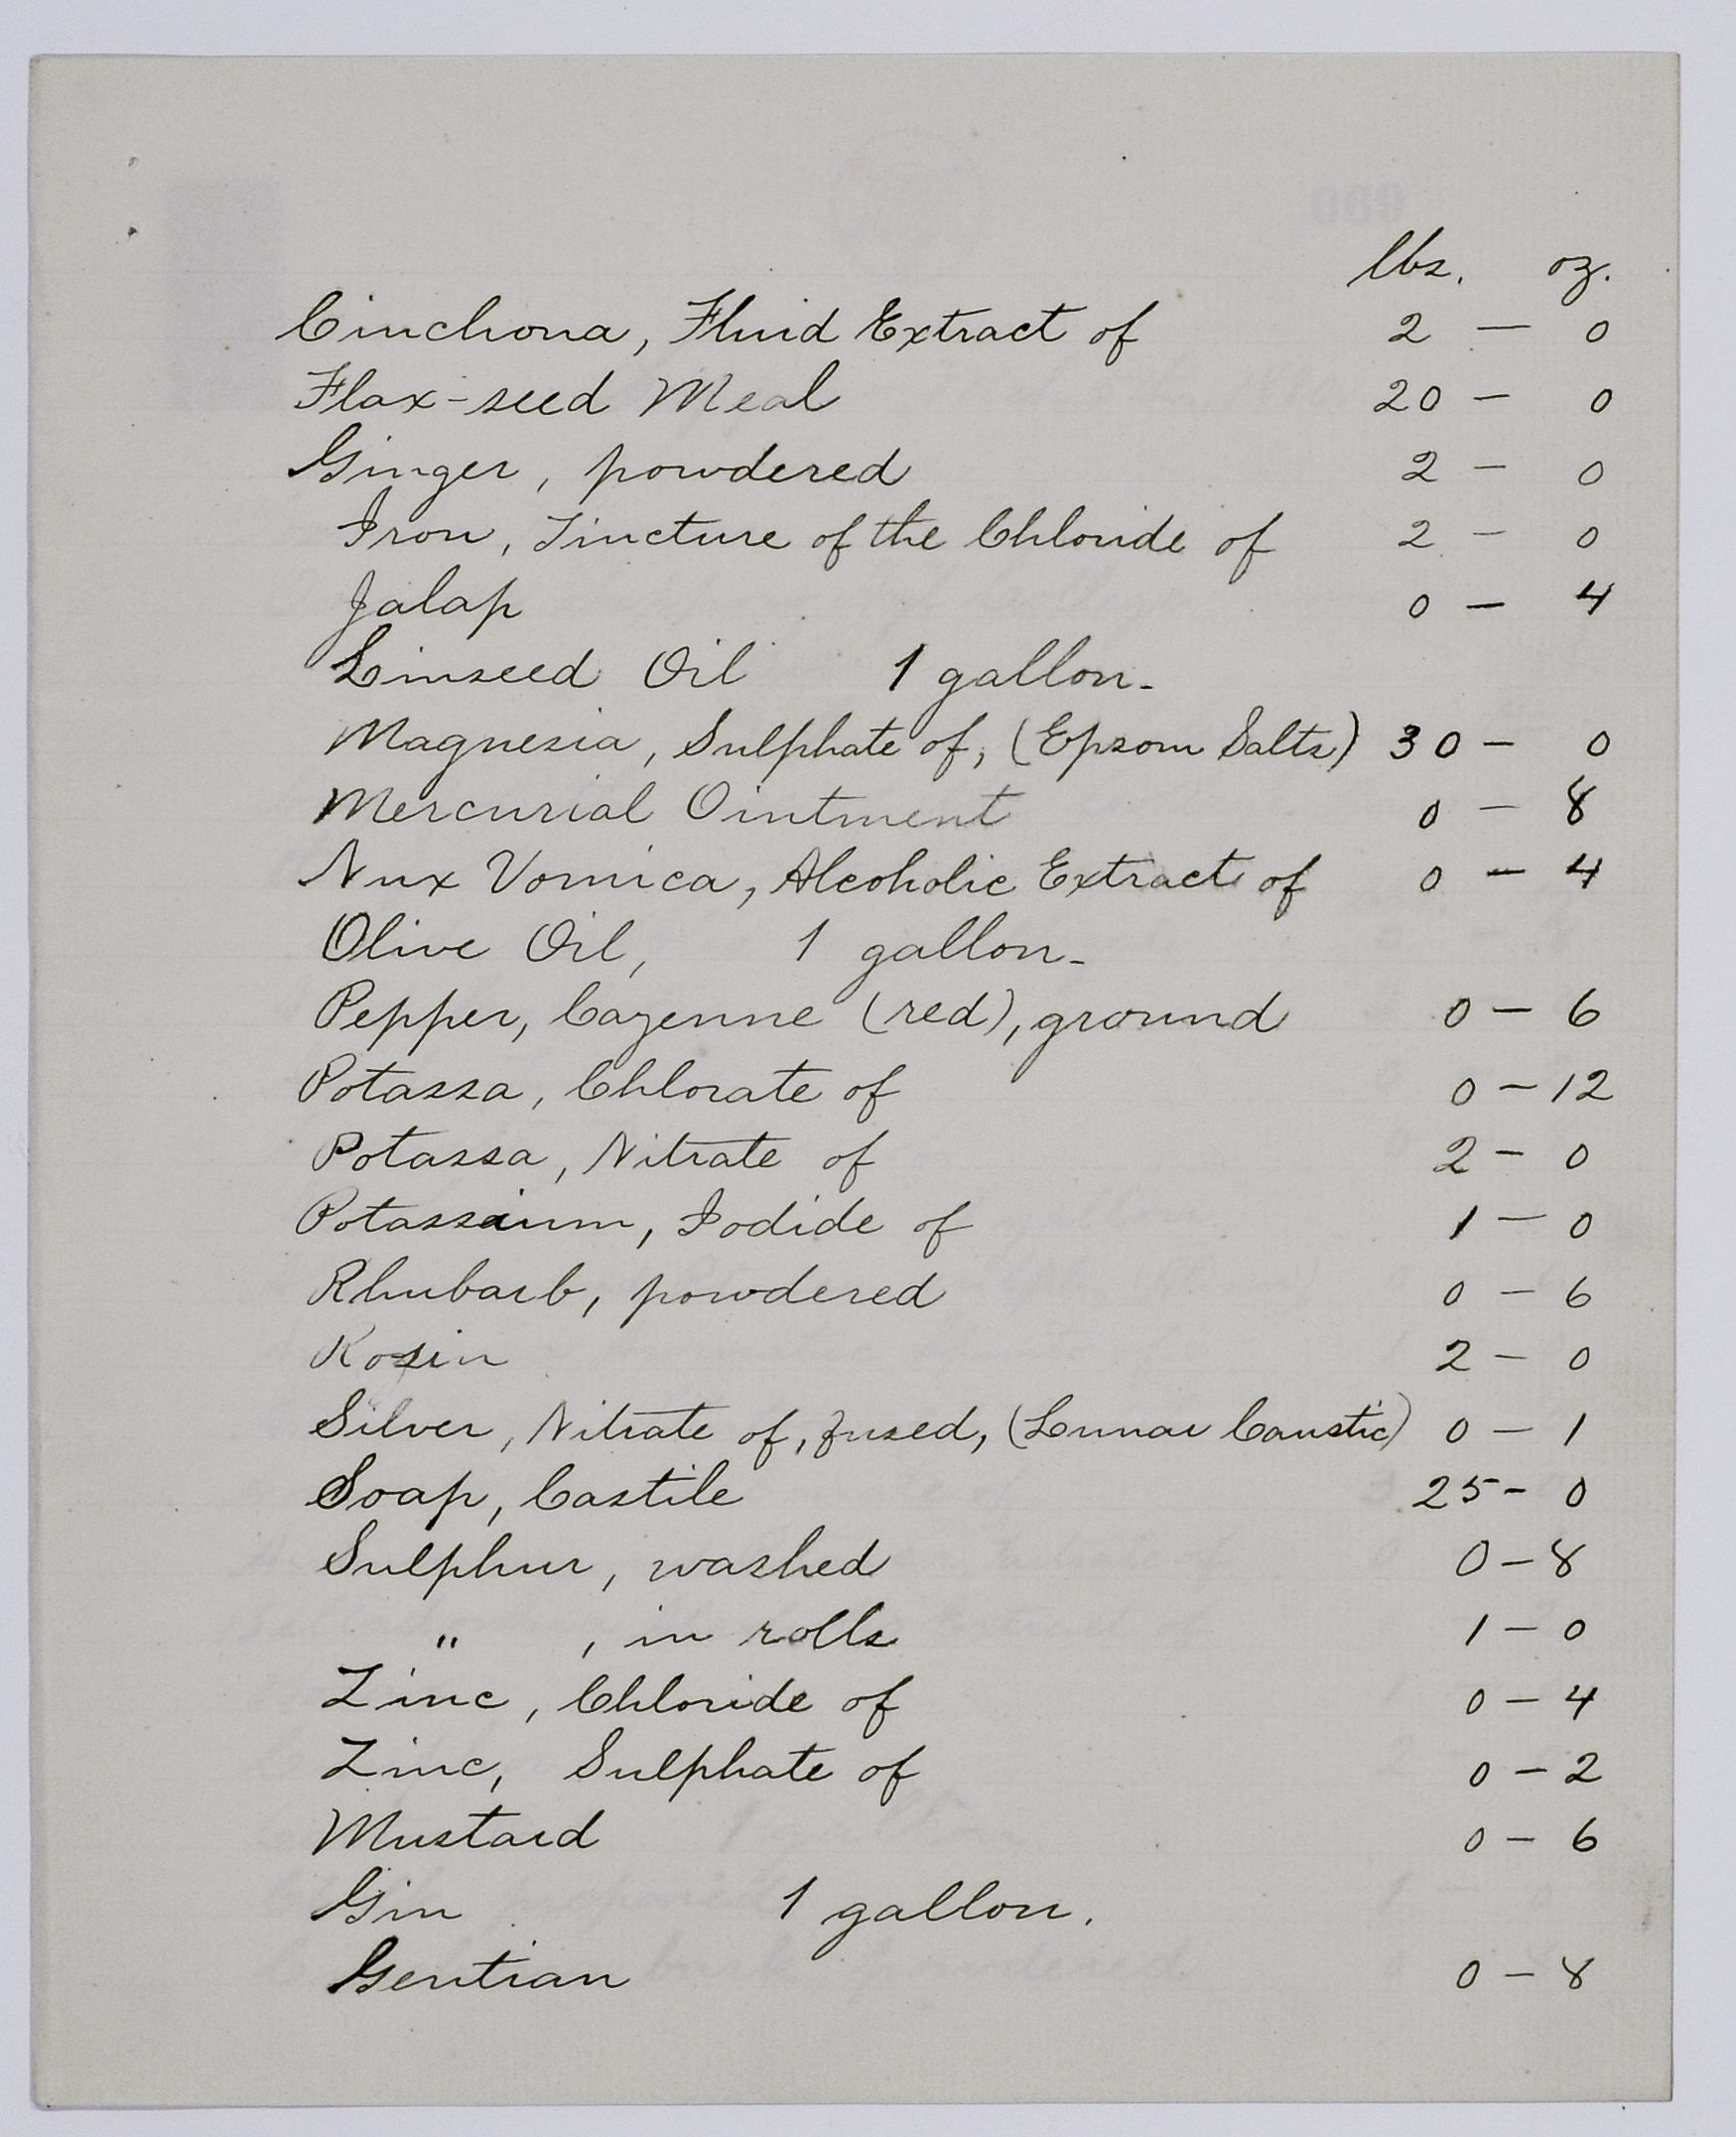 lbs. oz.
Cinchona, Fluid Extract of 2 — 0
Flax-seed Meal 20 — 0
Ginger, powdered 2 — 0
Iron, Tincture of the Chloride of 2 — 0
Jalap 0 — 4
Linseed Oil 1 gallon.
Magnesia, Sulphate of, (Epsom Salts) 30 — 0
Mercurial Ointment 0 — 8
Nux Vomica, Alcoholic Extract of 0 — 4
Olive Oil, 1 gallon.
Pepper, Cayenne (red), ground 0 — 6
Potassa, Chlorate of 0 — 12
Potassa, Nitrate of 2 — 0
Potassium, Iodide of 1 — 0
Rhubarb, powdered 0 — 6
Rosin 2 — 0
Silver, Nitrate of, fused, (Lunar Caustic) 0 — 1
Soap, Castile 25 — 0
Sulphur, washed 0 — 8
" , in rolls 1 — 0
Zinc, Chloride of 0 — 4
Zinc, Sulphate of 0 — 2
Mustard 0 — 6
Gin 1 gallon.
Gentian 0 — 8